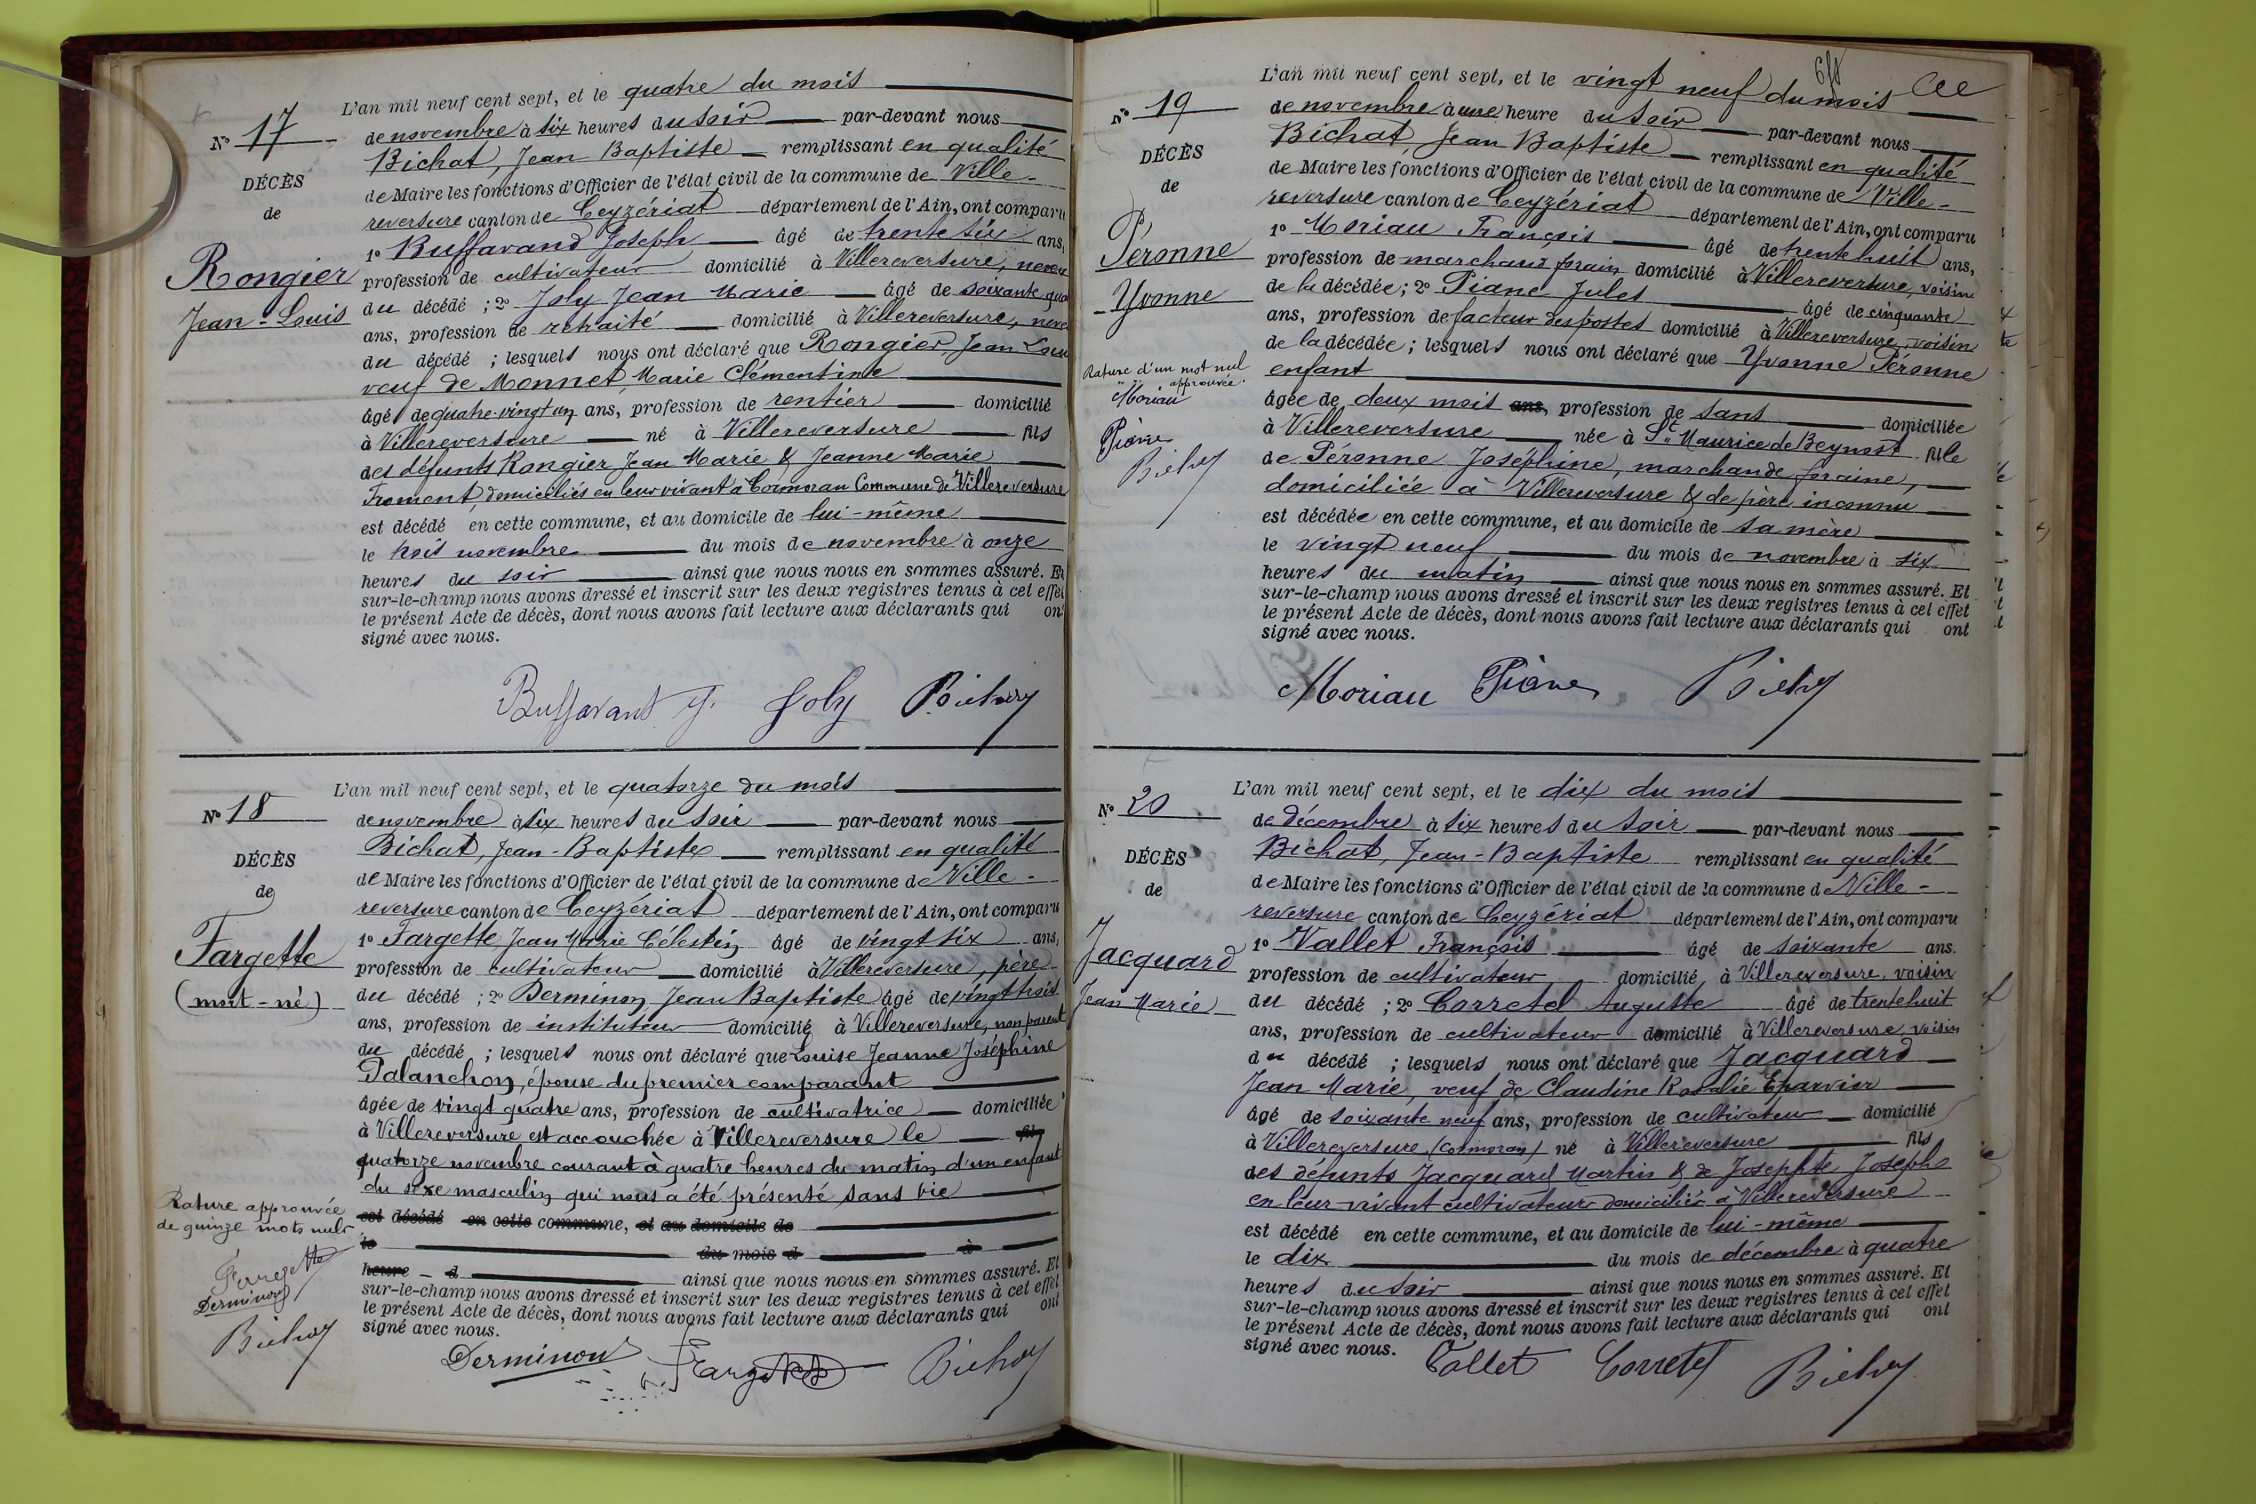 N° 17
DÉCÈS
de
Rongier
Jean-Louis
L'an mil neuf cent sept, et le quatre du mois
de novembre à six heures du soir par-devant nous
Bichat, Jean Baptiste remplissant en qualité
de Maire les fonctions d'Officier de l'état civil de la commune de Ville-
reversure canton de Ceyzériat département de l'Ain, ont comparu
1° Buffavand Joseph âgé de trente six ans,
profession de cultivateur domicilié à Villereversure, neveu
du décédé ; 2° Joly Jean Marie âgé de soixante
ans, profession de retraité domicilié à Villereversure,
du décédé ; lesquels nous ont déclaré que Rongier Jean Louis
veuf de Monnet, Marie Clémentine
âgé de quatre-vingt un ans, profession de rentier domicilié
à Villereversure né à Villereversure fils
des défunts Rongier Jean Marie & Jeanne Marie
Froment, domiciliés en leur vivant à Cormoran Commune de Villereversure
est décédé en cette commune, et au domicile de lui-même
le trois novembre du mois de novembre à onze
heures du soir ainsi que nous nous en sommes assuré. Et
sur-le-champ nous avons dressé et inscrit sur les deux registres tenus à cet effet
le présent Acte de décès, dont nous avons fait lecture aux déclarants qui ont
signé avec nous.
Buffavant J. Joly Bichat
N° 18
DÉCÈS
de
Fargette
(mort-né)
L'an mil neuf cent sept, et le quatorze du mois
de novembre à six heures du soir par-devant nous
Bichat, Jean-Baptiste remplissant en qualité
de Maire les fonctions d'Officier de l'état civil de la commune de Ville-
reversure canton de Ceyzériat département de l'Ain, ont comparu
1° Fargette Jean Marie Célestin âgé de vingt six ans,
profession de cultivateur domicilié à Villereversure, père
du décédé ; 2° Derminon Jean Baptiste âgé de vingt trois
ans, profession de instituteur domicilié à Villereversure, non parent
du décédé ; lesquels nous ont déclaré que Louise Jeanne Joséphine
Palanchon, épouse du premier comparant
âgée de vingt quatre ans, profession de cultivatrice domiciliée
à Villereversure est accouchée à Villereversure le fil
quatorze novembre courant à quatre heures du matin d'un enfant
du sexe masculin qui nous a été présenté sans vie
est décédé en cette commune, et au domicile de
le du mois d à
heure d ainsi que nous nous en sommes assuré. Et
sur-le-champ nous avons dressé et inscrit sur les deux registres tenus à cet effet
le présent Acte de décès, dont nous avons fait lecture aux déclarants qui ont
signé avec nous.
Rature approuvée
de quinze mots nuls
Fargette
Derminon
Bichat
Derminon Fargette Bichat
N° 19
DÉCÈS
de
Péronne
Yvonne
L'an mil neuf cent sept, et le vingt neuf du mois
de novembre à une heure du soir par-devant nous
Bichat, Jean Baptiste remplissant en qualité
de Maire les fonctions d'Officier de l'état civil de la commune de Ville-
reversure canton de Ceyzériat département de l'Ain, ont comparu
1° Moriau François âgé de trente huit ans,
profession de marchand forain domicilié à Villereversure, voisin
de la décédée ; 2° Piane Jules âgé de cinquante
ans, profession de facteur des postes domicilié à Villereversure, voisin
de la décédée ; lesquels nous ont déclaré que Yvonne Péronne
enfant
âgée de deux mois ans, profession de sans domiciliée
à Villereversure née à St Maurice de Beynost fille
de Péronne Joséphine, marchande foraine,
domiciliée à Villereversure & de père inconnu
est décédée en cette commune, et au domicile de sa mère
le vingt neuf du mois de novembre à six
heures du matin ainsi que nous nous en sommes assuré. Et
sur-le-champ nous avons dressé et inscrit sur les deux registres tenus à cet effet
le présent Acte de décès, dont nous avons fait lecture aux déclarants qui ont
signé avec nous.
Rature d'un mot nul
approuvée.
Moriau
Piane
Bichat
Moriau Piane Bichat
N° 20
DÉCÈS
de
Jacquard
Jean Marie
L'an mil neuf cent sept, et le dix du mois
de décembre à six heures du soir par-devant nous
Bichat, Jean-Baptiste remplissant en qualité
de Maire les fonctions d'Officier de l'état civil de la commune de Ville-
reversure canton de Ceyzériat département de l'Ain, ont comparu
1° Vallet François âgé de soixante ans.
profession de cultivateur domicilié à Villereversure, voisin
du décédé ; 2° Corretel Auguste âgé de trente huit
ans, profession de cultivateur domicilié à Villereversure voisin
du décédé ; lesquels nous ont déclaré que Jacquard
Jean Marie, veuf de Claudine Rosalie Eparvier
âgé de soixante neuf ans, profession de cultivateur domicilié
à Villereversure (Cormoran) né à Villereversure fils
des défunts Jacquard Martin & de Josephte Joseph
en leur vivant cultivateurs domiciliés à Villereversure
est décédé en cette commune, et au domicile de lui-même
le dix du mois de décembre à quatre
heures du soir ainsi que nous nous en sommes assuré. Et
sur-le-champ nous avons dressé et inscrit sur les deux registres tenus à cet effet
le présent Acte de décès, dont nous avons fait lecture aux déclarants qui ont
signé avec nous.
Vallet Corretel Bichat